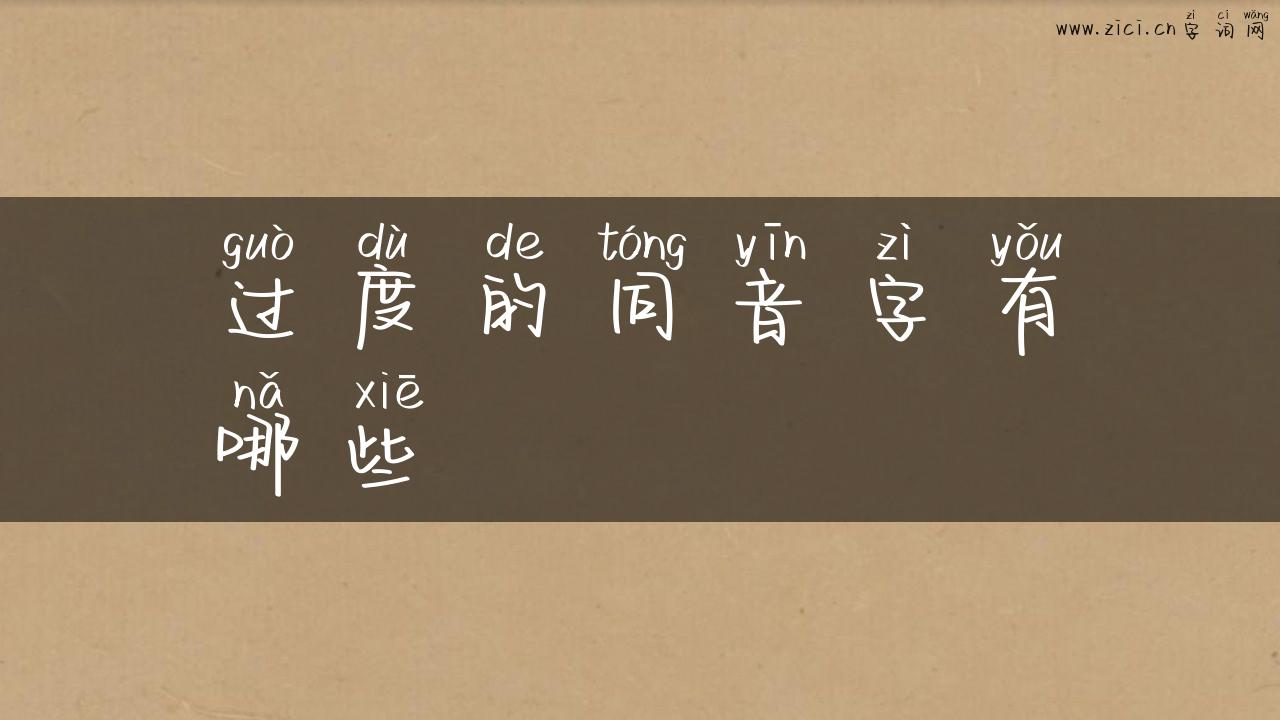 zì cí wǎng
www.zici.cn 字 词 网
guò dù de tóng yīn zì yǒu
过 度 的 同 音 字 有
nǎ xiē
哪 些